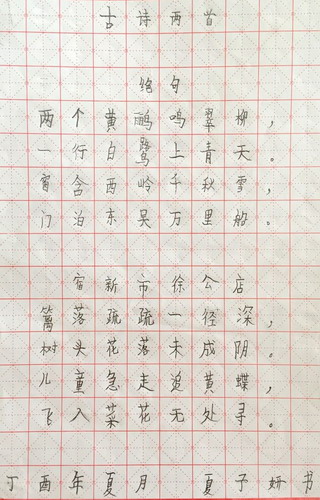 古诗两首
绝句
两个黄鹂鸣翠柳，
一行白鹭上青天。
窗含西岭千秋雪，
门泊东吴万里船。
宿新市徐公店
篱落疏疏一径深，
树头花落未成阴。
儿童急走追黄蝶，
飞入菜花无处寻。
丁酉年夏月 夏子妍书